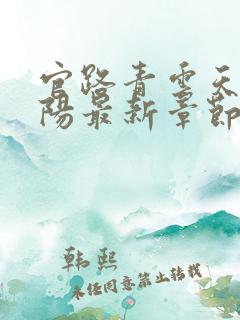 官路青云天
陽最新章節
韩熙
未经同意禁止转载